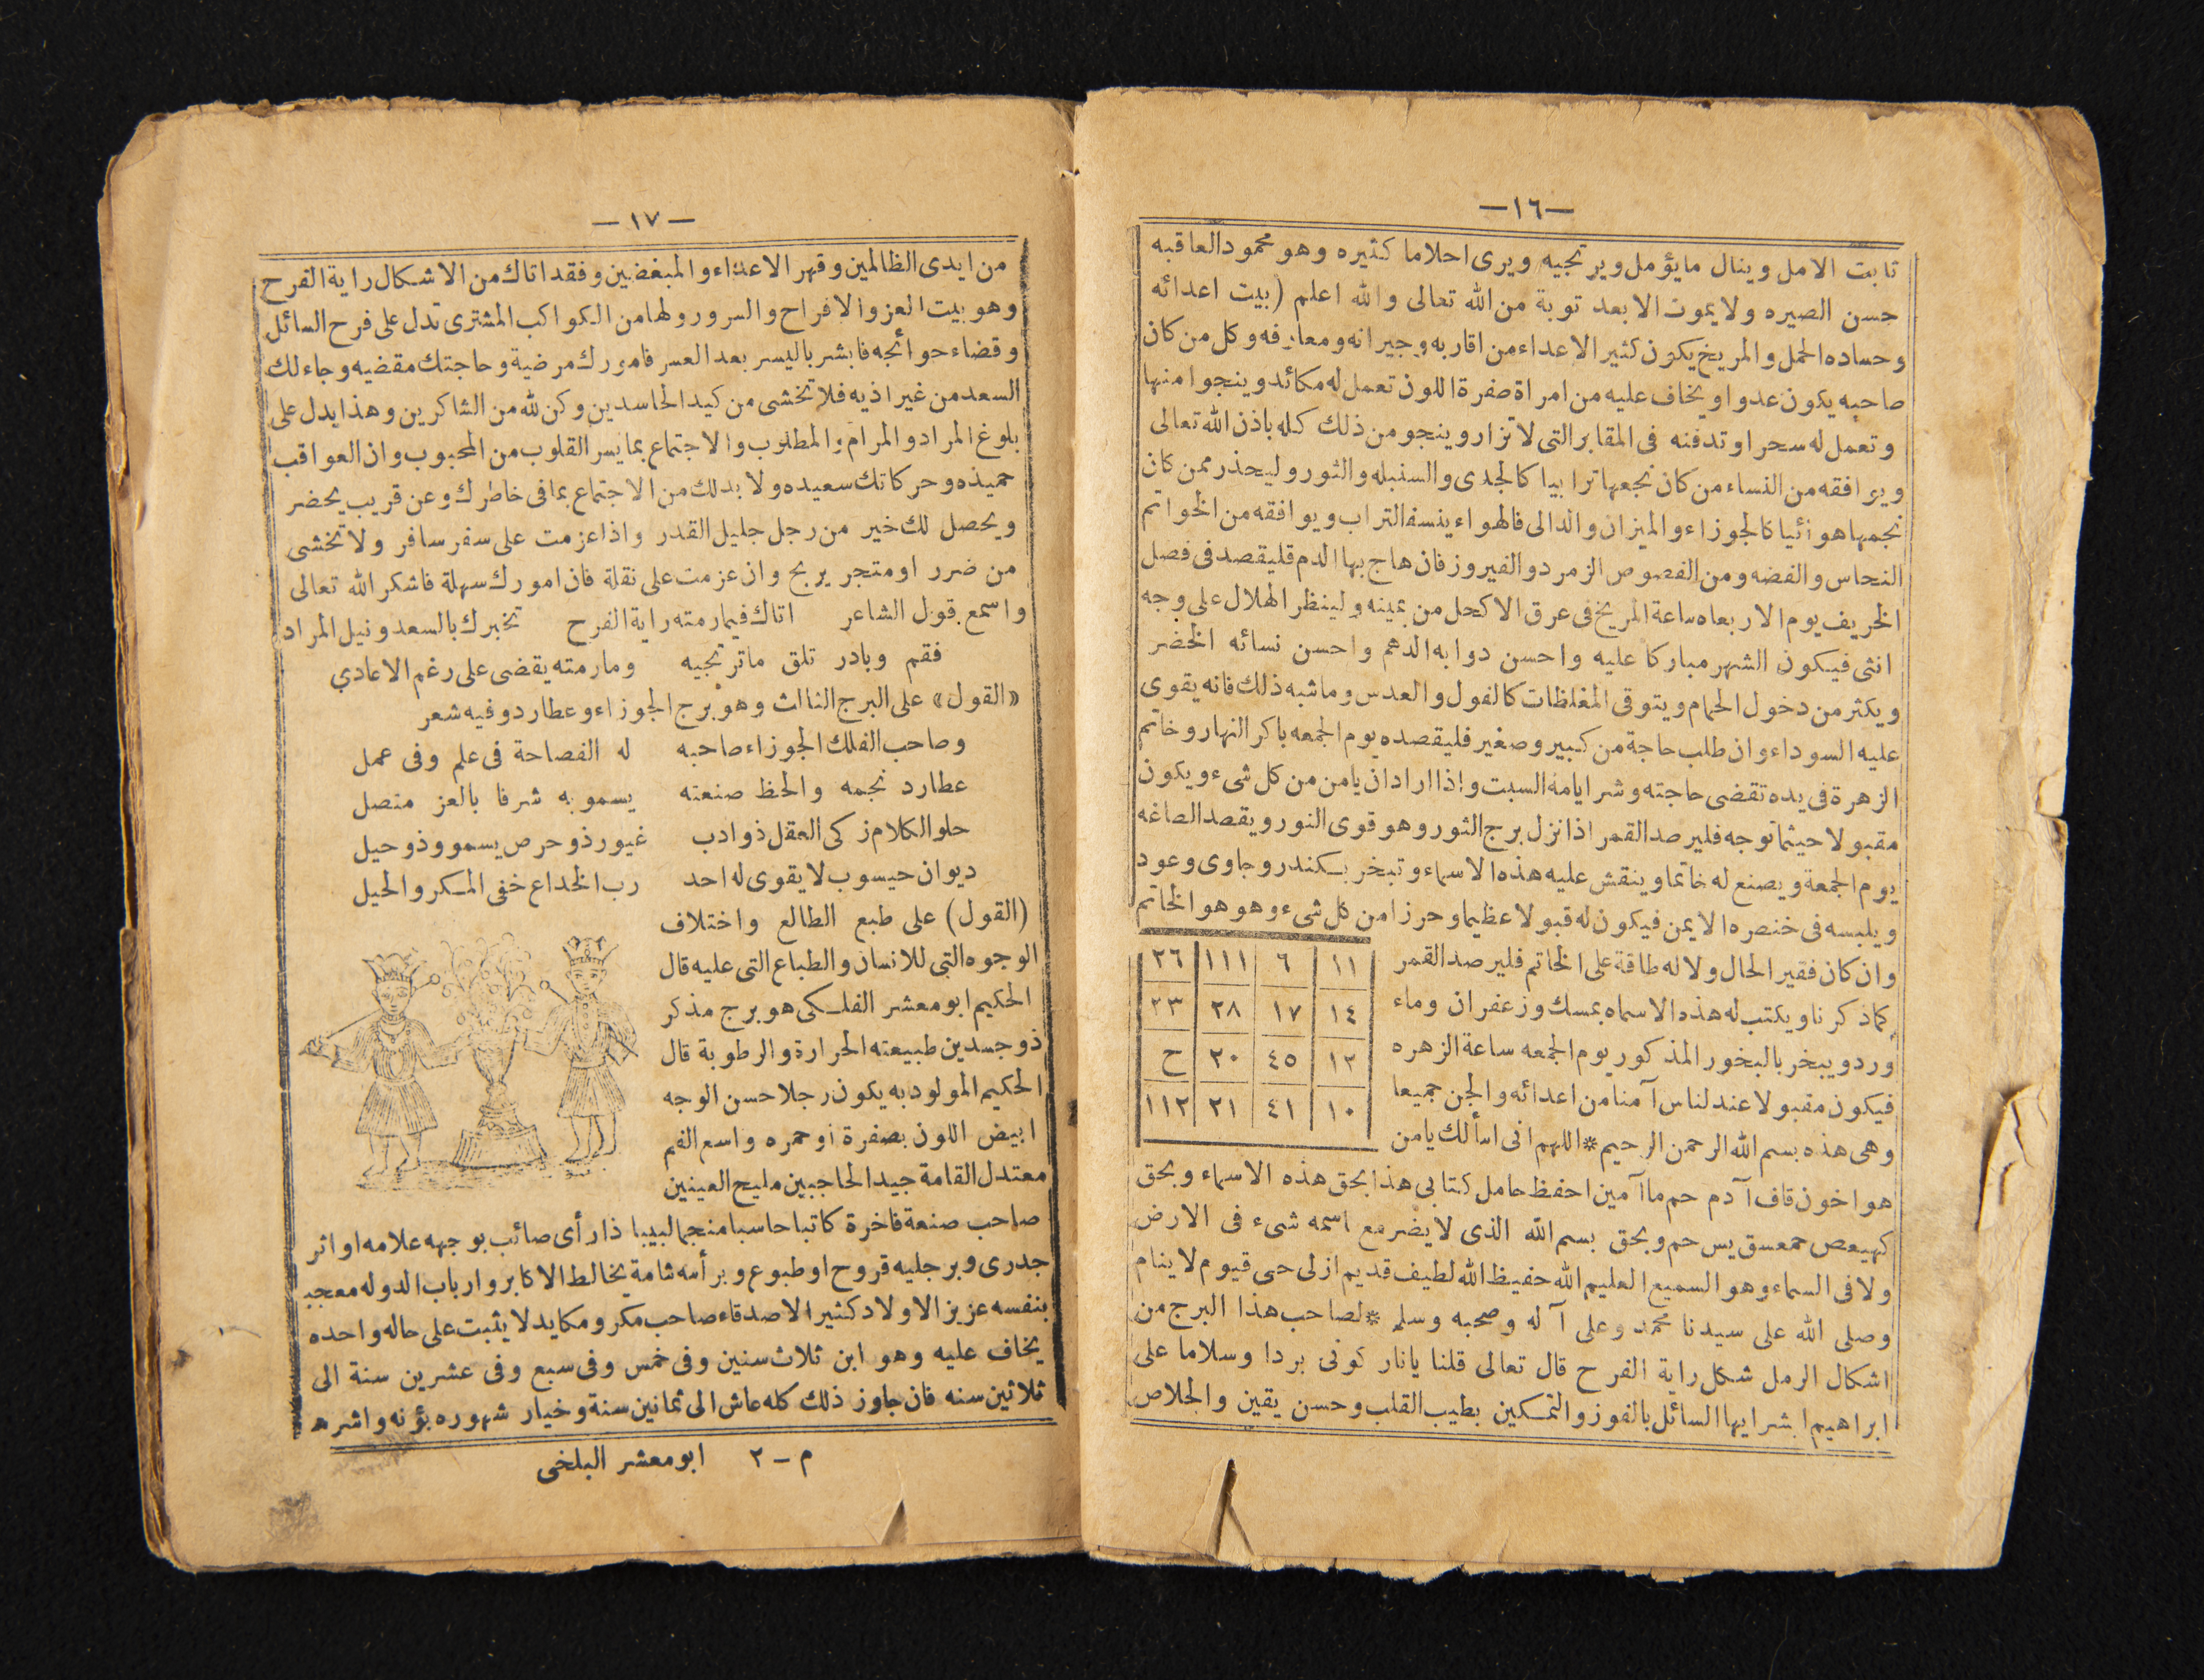 —١٦—
تابت الامل وينال مايؤمل ويرتجيه ويرى احلاما كثيره وهو محمود العاقبه
حسن الصيره ولا يموت الا بعد توبة من الله تعالى والله اعلم (بيت اعدائه
وحساده الحمل والمريخ يكون كثير الاعداء من اقاربه وجيرانه ومعارفه وكل من كان
صاحبه يكون عدوا ويخاف عليه من امراة صفرة اللون تعمل له مكائد وينجوا منها
وتعمل له سحر او تدفنه فى المقابر التى لا تزار وينجو من ذلك كله باذن الله تعالى
ويوافقه من النساء من كان نجمها ترابيا كالجدى والسنبله والثور وليحذر ممن كان
نجمها هوائيا كالجوزاء والميزان والدالى فالهواء ينسف التراب ويوافقه من الخواتم
النحاس والفضه ومن الفصوص الزمرد والفيروز فان هاج بها الدم فليقصد فى فصل
الخريف يوم الاربعاه ساعة المريخ فى عرق الاكحل من يمينه ولينظر الهلال على وجه
انثى فيكون الشهر مباركا عليه واحسن دوابه الدهم واحسن نسائه الخضر
ويكثر من دخول الحمام ويتوقى المغلظات كالفول والعدس وماشبه ذلك فانه يقوى
عليه السوداء وان طلب حاجة من كبير وصغير فليقصده يوم الجمعه باكر النهار وخاتم
الزهرة فى يده تقضى حاجته وشر ايامه السبت واذا اراد ان يامن من كل شىء ويكون
مقبولا حيثما توجه فليرصد القمر اذا نزل برج الثور وهو قوى النور ويقصد الصاغه
يوم الجمعة ويصنع له خاتما وينقش عليه هذه الاسماء وتبخر بكندر وجاوى وعود
ويلبسه فى خنصره الايمن فيكون له قبولا عظيما وحرزا من كل شىء وهو هو الخاتم
وان كان فقير الحال ولا له طاقة على الخاتم فليرصد القمر
كماذكرنا ويكتب له هذه الاسماه بمسك وزعفران وماء
ورد ويبخر بالبخور المذكور يوم الجمعه ساعة الزهره
فيكون مقبولا عند لناس آمنا من اعدائه والجن جميعا
وهى هذه بسم الله الرحمن الرحيم * اللهم انى اسألك يامن
١١ ٦ ١١١ ٢٦
١٤ ١٧ ٢٨ ٢٣
١٢ ٤٥ ٢٠ ح
١٠ ٤١ ٢١ ١١٢
هو اخون قاف آدم حم ما آمين احفظ حامل كتابى هذا بحق هذه الاسماء وبحق
كهيعص حمعسق يس حم وبحق بسم الله الذى لا يضر مع اسمه شىء فى الارض
ولا فى السماء وهو السميع العليم الله حفيظ الله لطيف قديم ازلى حى قيوم لا ينام
وصلى الله على سيدنا محمد وعلى آله وصحبه وسلم * لصاحب هذا البرج من
اشكال الرمل شكل راية الفرح قال تعالى قلنا يانار كونى بردا وسلاما على
ابراهيم ابشر ايها السائل بالفوز والتمكين بطيب القلب وحسن يقين والخلاص
— ١٧ —
من ايدى الظالمين وقهر الاعداء والمبغضين وفقد اتاك من الاشكال راية الفرح
وهو بيت العز والافراح والسرور ولها من الكواكب المشترى تدل على فرح السائل
وقضاء حوائجه فابشر باليسر بعد العسر فامورك مرضية وحاجتك مقضيه وجاء لك
السعد من غير اذيه فلا تخشى من كيد الحاسدين وكن لله من الشاكرين وهذا يدل على
بلوغ المراد والمرام والمطلوب والاجتماع بما يسر القلوب من المحبوب وان العواقب
حميذه وحركاتك سعيده ولا بد لك من الاجتماع بما فى خاطرك وعن قريب يحضر
ويحصل لك خير من رجل جليل القدر واذا عزمت على سفر سافر ولا تخشى
من ضرر او متجر يربح وان عزمت على نقلة فان امورك سهلة فاشكر الله تعالى
واسمع قول الشاعر اتاك فيما رمته راية الفرح تخبرك بالسعد ونيل المراد
فقم وبادر تلق ماترتجيه ومارمته يقضى على رغم الاعادي
«القول» على البرج الثالث وهو برج الجوزاء وعطارد وفيه شعر
وصاحب الفلك الجوزاء صاحبه له الفصاحة فى علم وفى عمل
عطارد نجمه والحظ صنعته يسمو به شرفا بالعز متصل
حلو الكلام زكى العقل ذو ادب غيور ذو حرص يسمو وذو حيل
ديوان حيسوب لا يقوى له احد رب الخداع خفى المكر والحيل
(القول) على طبع الطالع واختلاف
الوجوه التى للانسان والطباع التى عليه قال
الحكيم ابو معشر الفلكى هو برج مذكر
ذو جسدين طبيعته الحرارة والرطوبة قال
الحكيم المولود به يكون رجلا حسن الوجه
ابيض اللون بصفرة او حمره واسع الفم
معتدل القامة جيد الحاجبين مليح العينين
صاحب صنعة فاخرة كاتبا حاسبا منجما لبيبا ذا رأى صائب بوجهه علامه او اثر
جدرى وبرجليه قروح او طبوع وبرأسه شامة يخالط الاكابر وارباب الدوله معجب
بنفسه عزيز الاولاد كثير الاصدقاء صاحب مكر ومكايد لا يثبت على حاله واحده
يخاف عليه وهو ابن ثلاث سنين وفى خمس وفى سبع وفى عشرين سنة الى
ثلاثين سنه فان جاوز ذلك كله عاش الى ثمانين سنة وخيار شهوره بؤنه واشره
م – ٢ ابو معشر البلخى